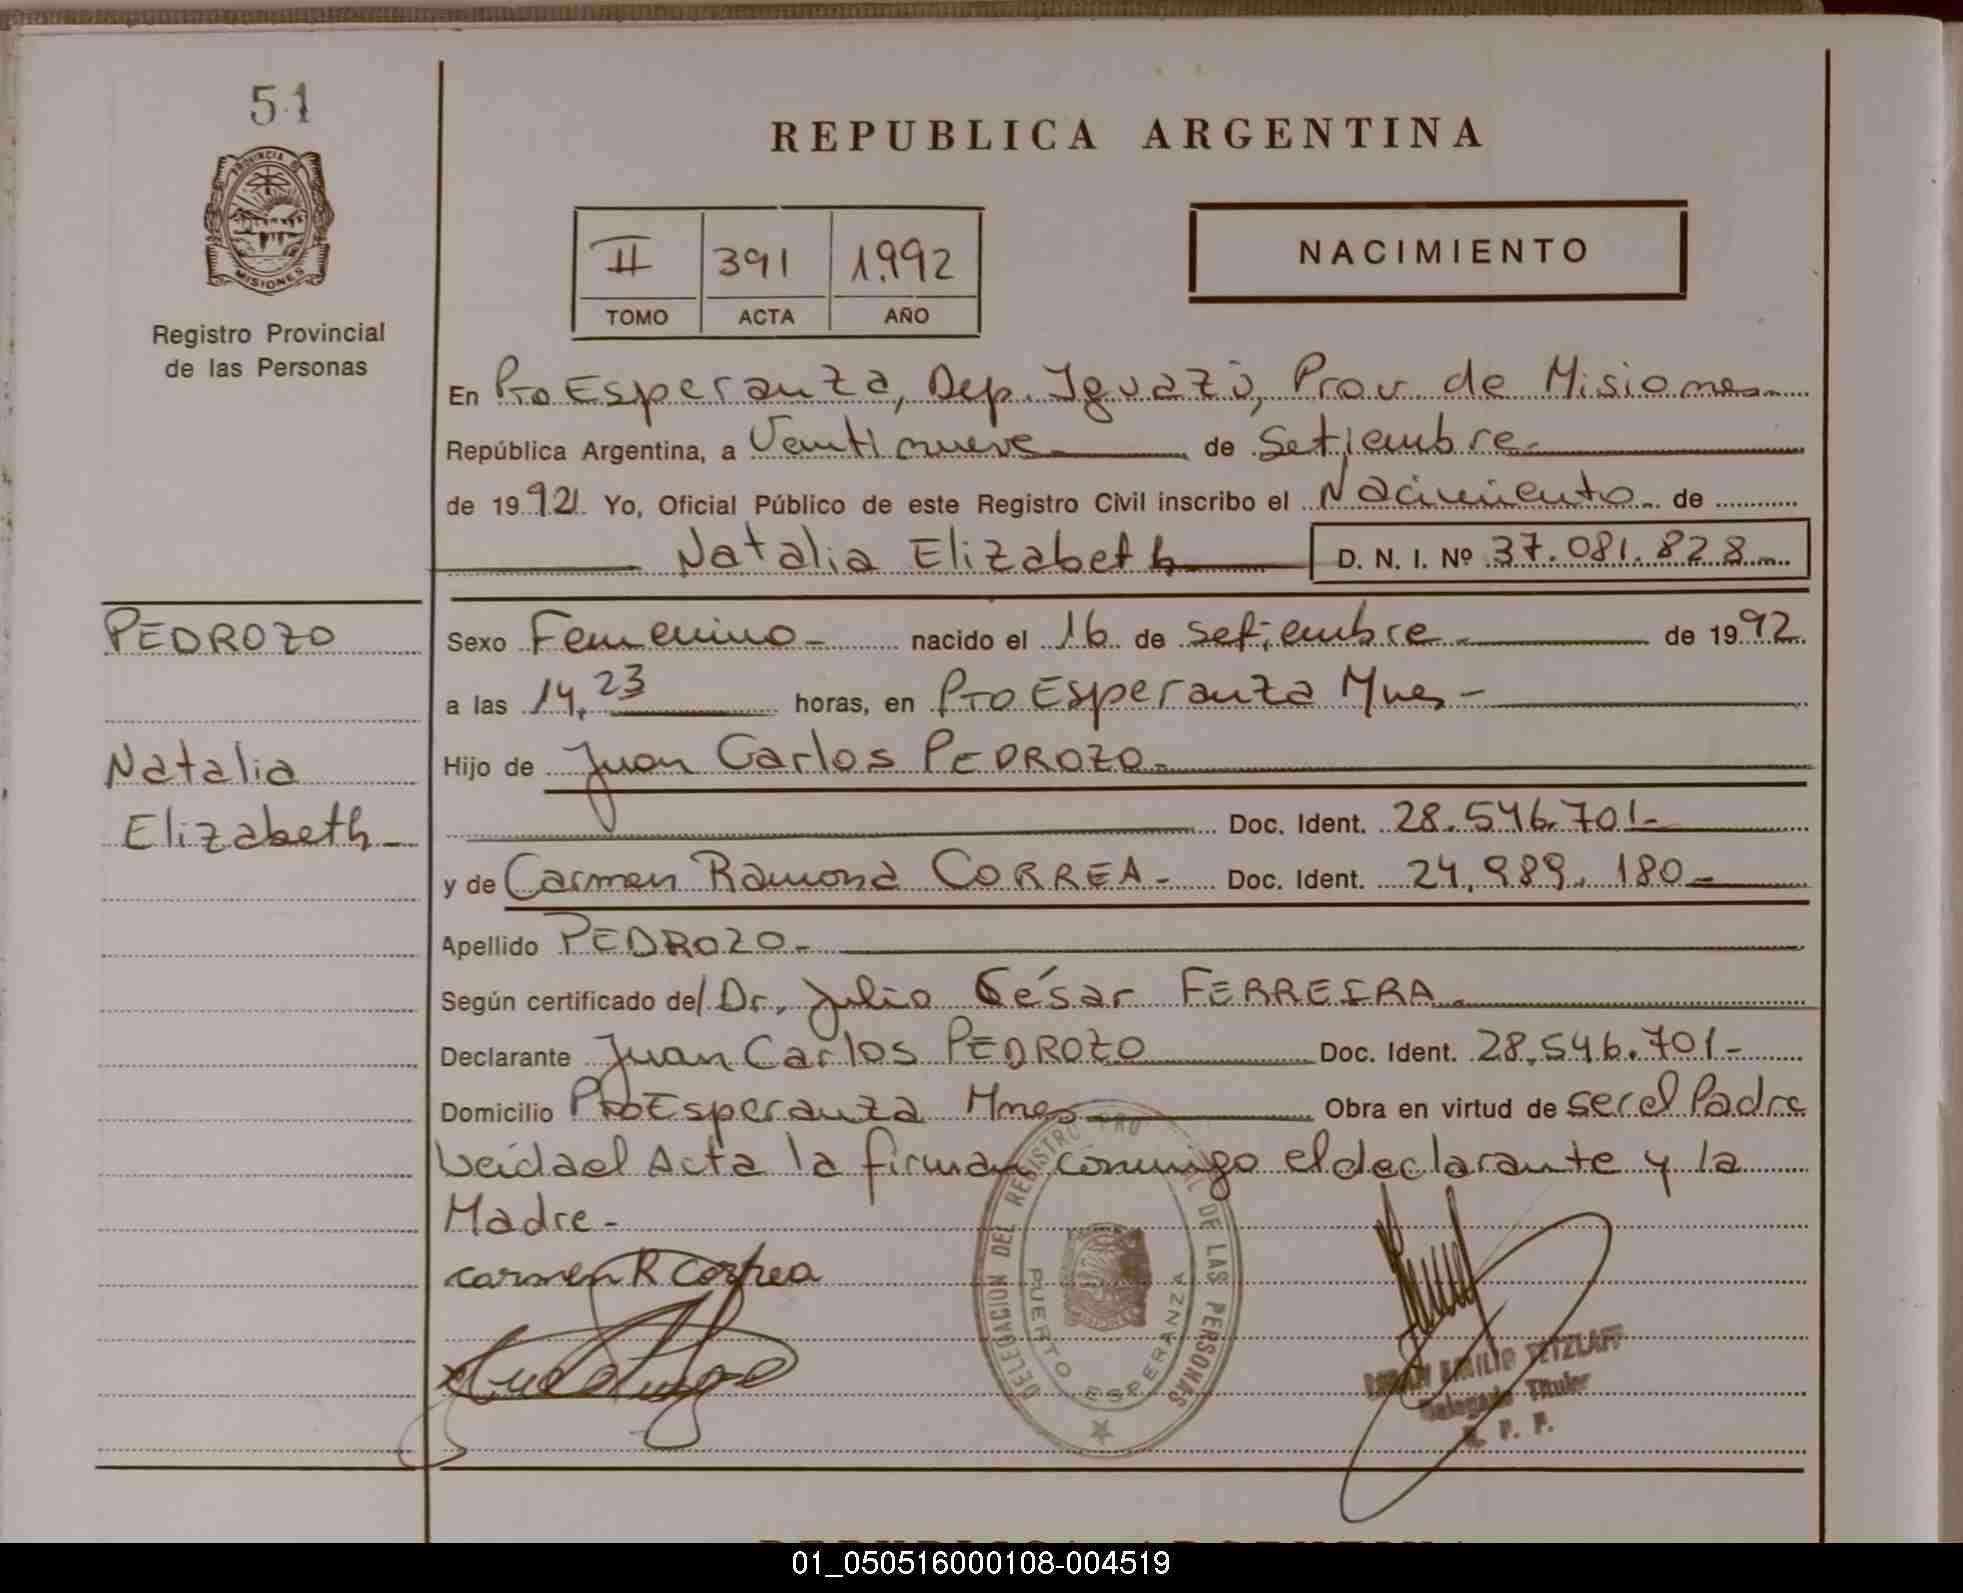 51
PROVINCIA DE
MISIONES
Registro Provincial
de las Personas
REPUBLICA ARGENTINA
II 391 1992
TOMO ACTA AÑO
NACIMIENTO
En Pto Esperanza, Dep. Iguazú, Prov. de Misiones
República Argentina, a Ventinueve de Setiembre
de 1992 Yo, Oficial Público de este Registro Civil inscribo el Nacimiento de
Natalia Elizabeth D. N. I. Nº 37.081.828
PEDROZO
Natalia
Elizabeth
Sexo Femenino nacido el 16 de setiembre de 1992
a las 14,23 horas, en Pto Esperanza Mnes
Hijo de Juan Carlos PEDROZO
Doc. Ident. 28.546.701
y de Carmen Ramona CORREA Doc. Ident. 24.989.180
Apellido PEDROZO
Según certificado del Dr. Julio César FERREIRA
Declarante Juan Carlos PEDROZO Doc. Ident. 28.546.701
Domicilio Pto Esperanza Mnes Obra en virtud de ser el Padre
Leida el Acta la firman conmigo el declarante y la
Madre
carmen R Correa
DELEGACION DEL REGISTRO PRO AL DE LAS PERSONAS
PUERTO ESPERANZA
EMILIO TETZLAFF
Delegado Titular
R. P. P.
01_050516000108-004519